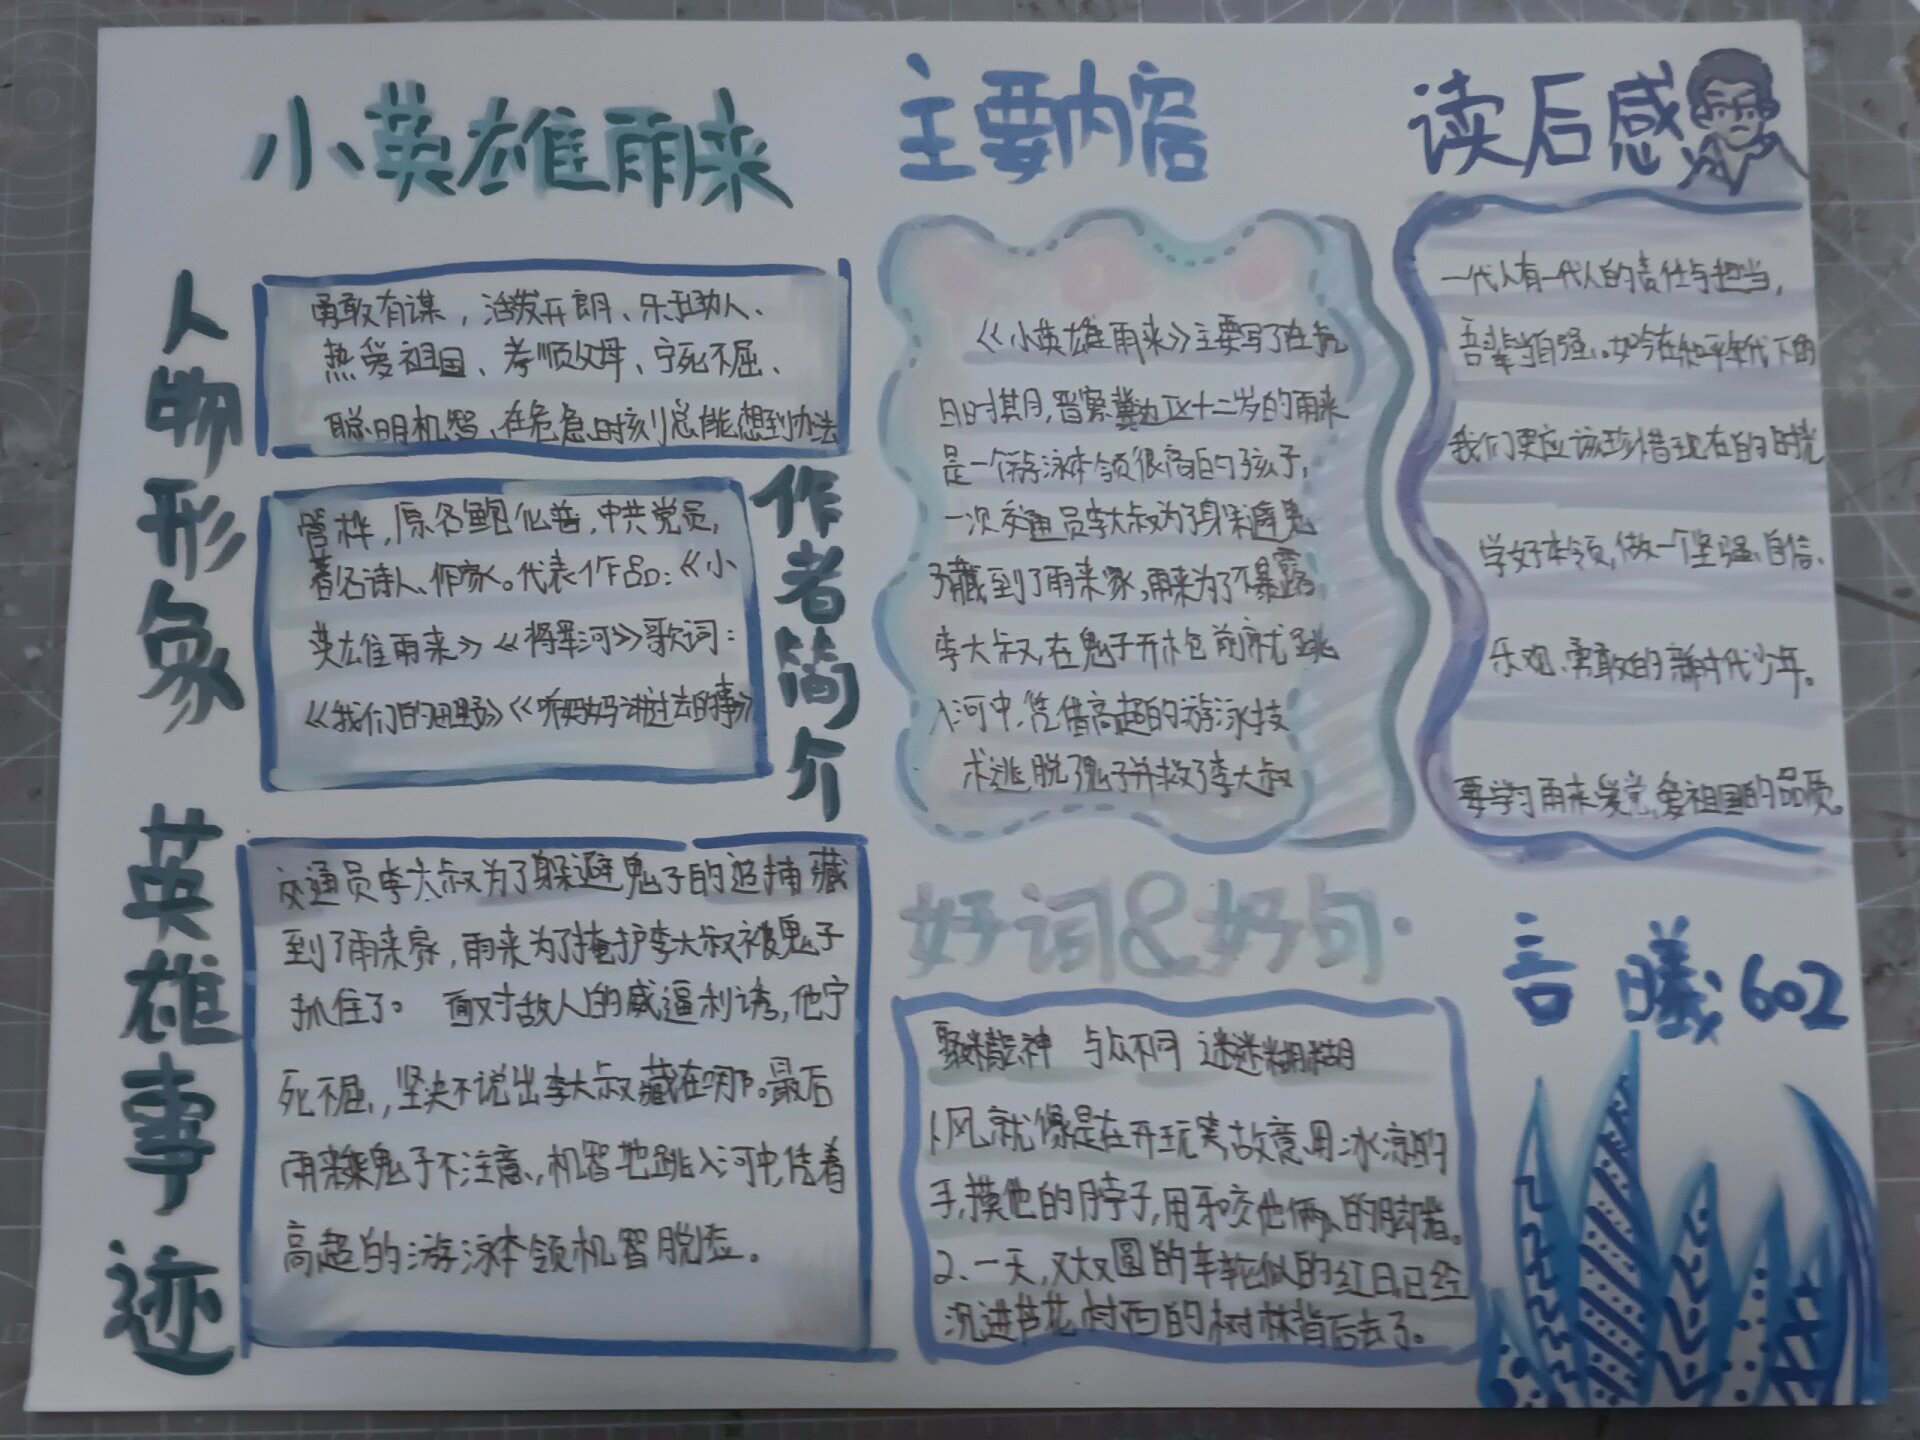 小英雄雨来
人物形象
勇敢有谋，活拨开朗、乐于助人、
热爱祖国、孝顺父母、宁死不屈、
聪明机智、在危急时刻总能想到办法
作者简介
管桦，原名鲍化普，中共党员，
著名诗人、作家。代表作品：《小
英雄雨来》《将军河》歌词：
《我们的田野》《听妈妈讲过去的事》
英雄事迹
交通员李大叔为了躲避鬼子的追捕藏
到了雨来家，雨来为了掩护李大叔被鬼子
抓住了。面对敌人的威逼利诱，他宁
死不屈，坚决不说出李大叔藏在哪。最后
雨来趁鬼子不注意，机智地跳入河中，凭着
高超的游泳本领机智脱险。
主要内容
《小英雄雨来》主要写了在抗
日时期，晋察冀边区十二岁的雨来
是一个游泳本领很高的孩子，
一次交通员李大叔为了躲避鬼
子藏到了雨来家，雨来为了不暴露
李大叔，在鬼子开枪前就跳
入河中，凭借高超的游泳技
术逃脱了鬼子并救了李大叔
好词&好句
聚精龍神 与众不同 迷迷糊糊
1、风就像是在开玩笑故意用冰凉的
手，摸他的脖子，用牙咬他俩人的脚指。
2、一天，又大又圆的车轮似的红日，已经
沉进芦花村西的树林背后去了。
读后感
一代人有一代人的责任与担当，
吾辈当自强。如今在和平年代下的
我们更应该珍惜现在的时光
学好本领，做一个坚强、自信、
乐观、勇敢的新时代少年。
要学习雨来爱党，爱祖国的品质。
言曦；602